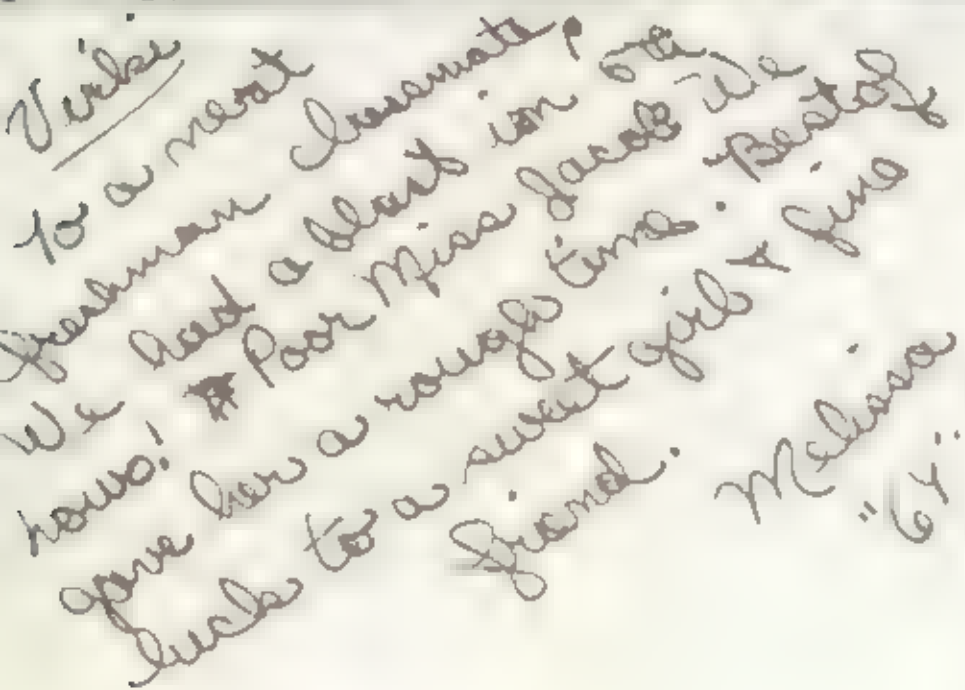 Vicki
to a neat
freshman classmate,
We had a blast in 6th
hour! Poor Miss Jacob we
gave her a rough time. Best of
luck to a sweet girl & fine
friend.
Melissa
"64"